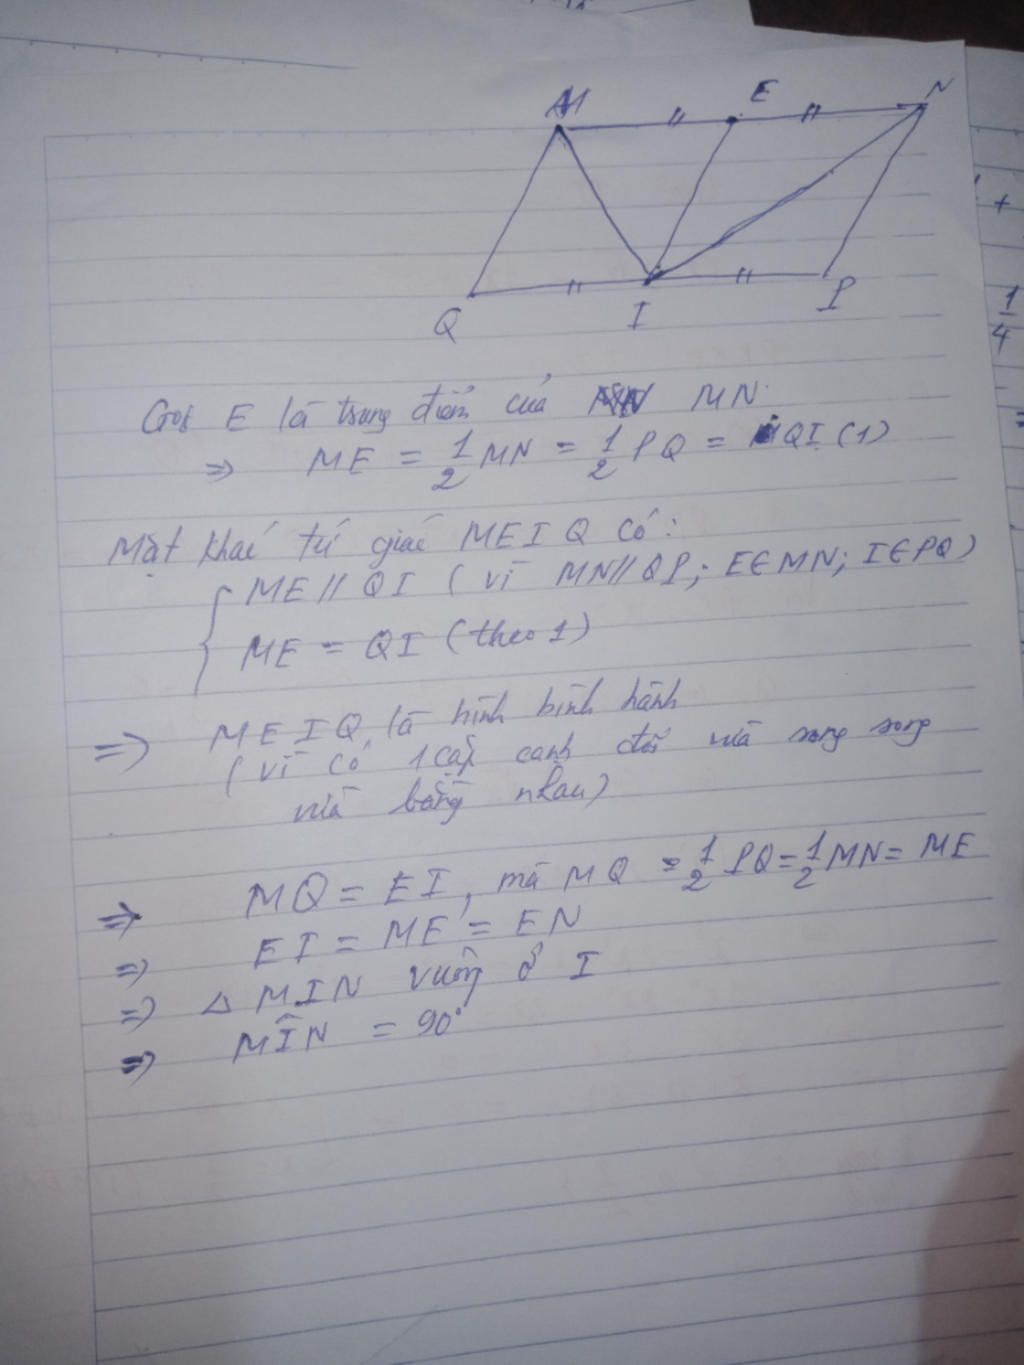 M E N
Q I P
+
1
4
Gọi E là trung điểm của MN
=> ME = 1/2 MN = 1/2 PQ = QI (1)
Mặt khác tứ giác MEIQ có:
{ ME // QI ( vì MN // QP; E∈MN; I∈PQ)
ME = QI (theo 1)
=> MEIQ là hình bình hành
( vì có 1 cặp cạnh đối vừa song song
vừa bằng nhau)
=> MQ = EI, mà MQ = 1/2 PQ = 1/2 MN = ME
=> EI = ME = EN
=> △ MIN vuông ở I
=> MÎN = 90°